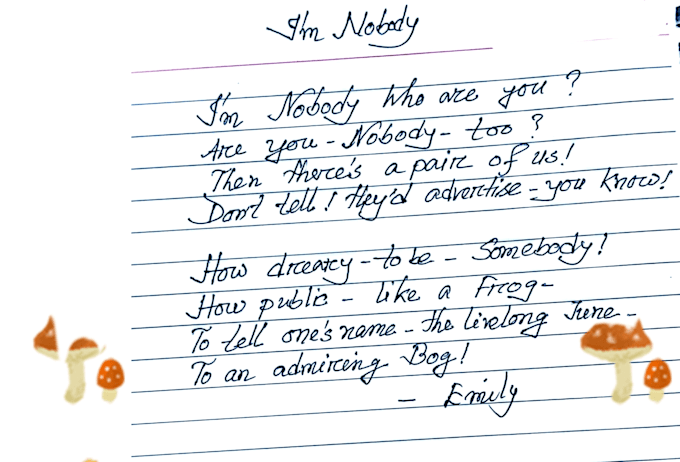 I'm Nobody
I'm Nobody Who are you ?
Are you - Nobody - too ?
Then there's a pair of us!
Don't tell! they'd advertise - you know!
How dreary - to be - Somebody!
How public - like a Frog -
To tell one's name - the livelong June -
To an admiring Bog!
- Emily